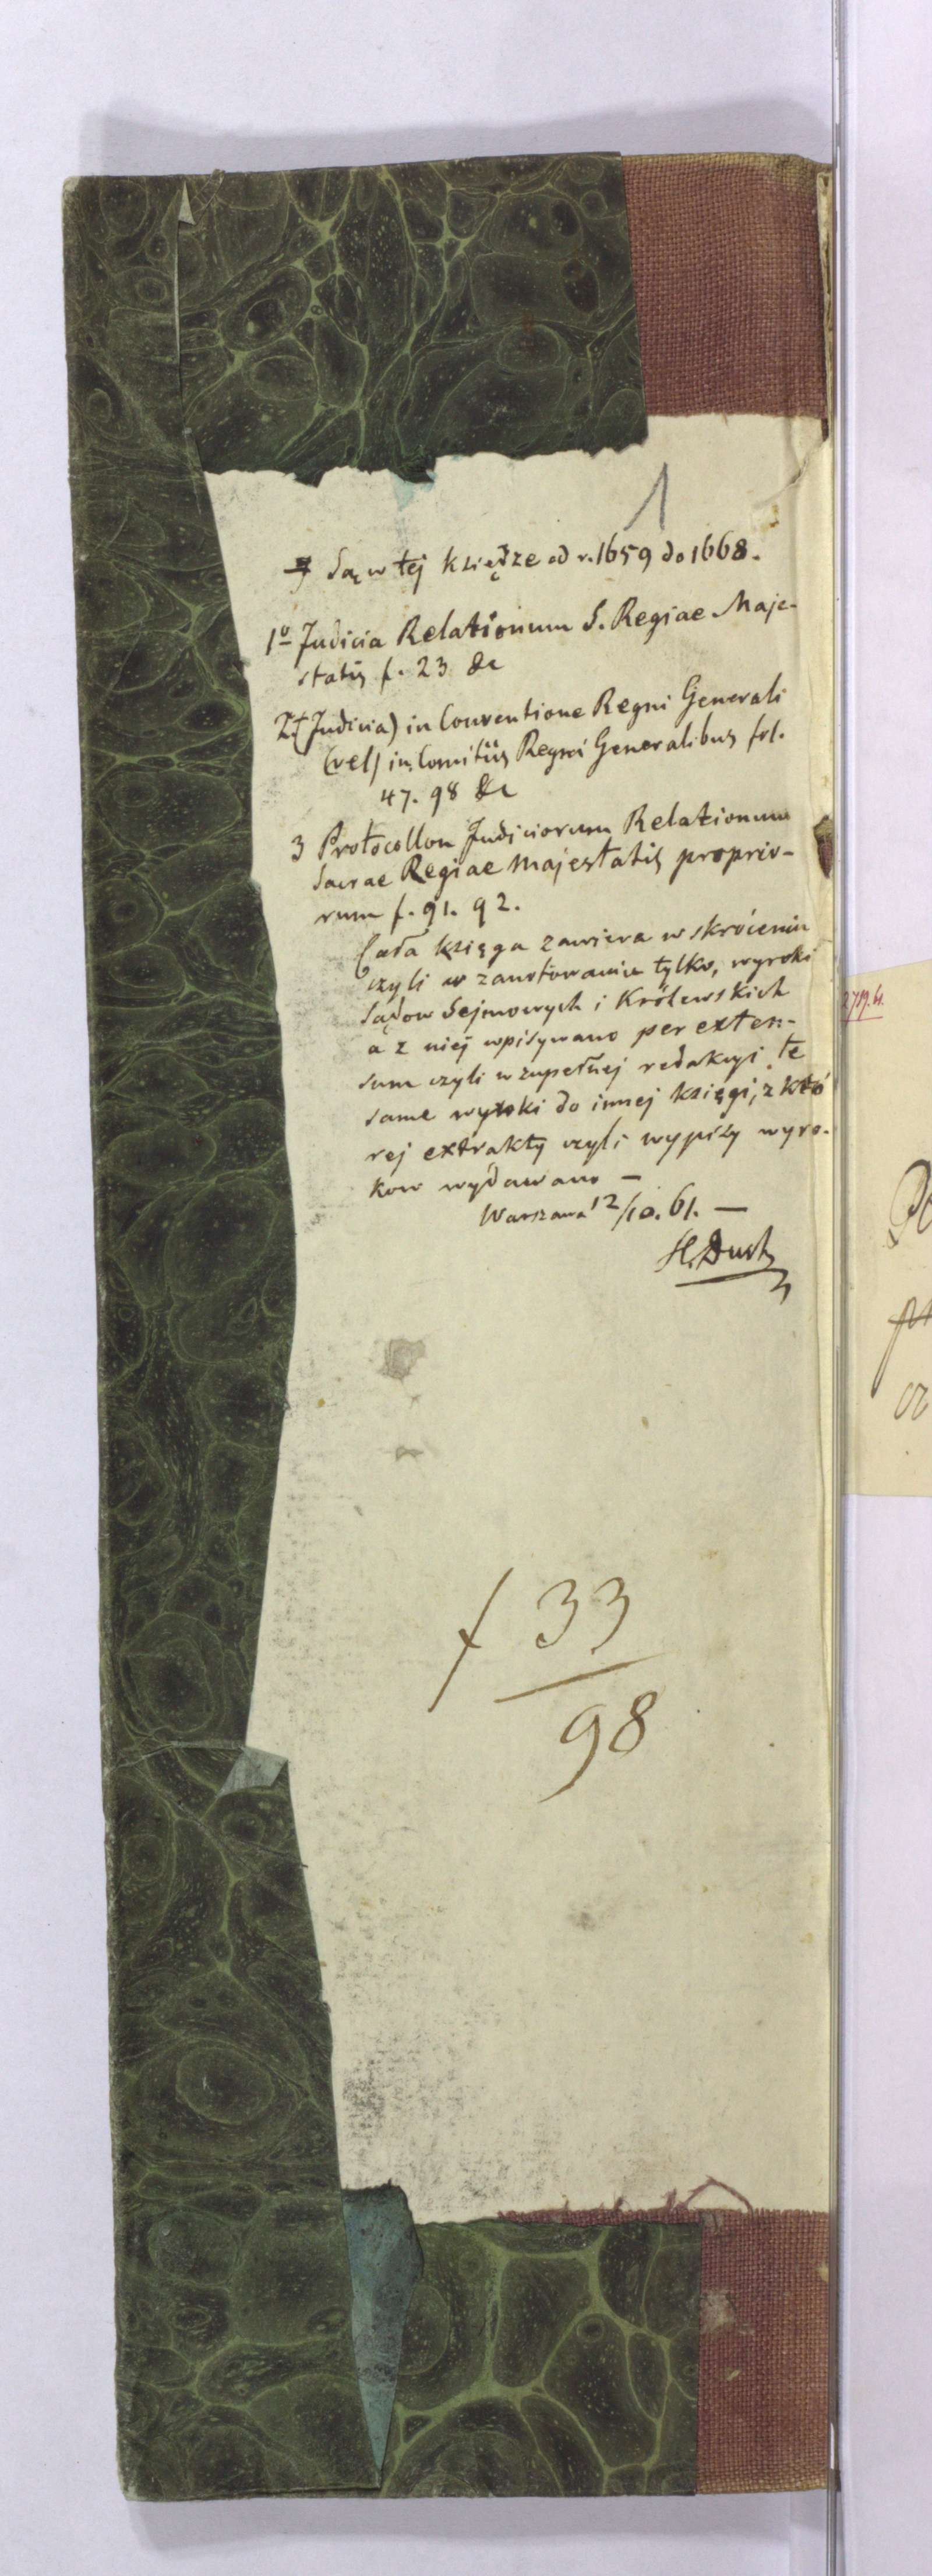 1
Są w tej księdze od r. 1659 do 1668.
1º Judicia Relationum S. Regiae Maje-
statis f. 23 &c
2 (Judicia) in Conventione Regni Generali
(vel) in Comitiis Regni Generalibus fol.
47. 98 &c
3 Protocollon Judiciorum Relationum
Sacrae Regiae Majestatis proprio-
rum f. 91. 92.
Cała księga zawiera w skróceniu
czyli w zanotowaniu tylko, wyroki
Sądow Sejmowych i Królewskich
a z niej wpisywano per exten-
sum czyli w zupełnej redakcyi te
same wyroki do innej księgi, z któ
rej extrakty czyli wypisy wyro-
kow wydawano —
Warszawa 12/10. 61. —
f 33
98